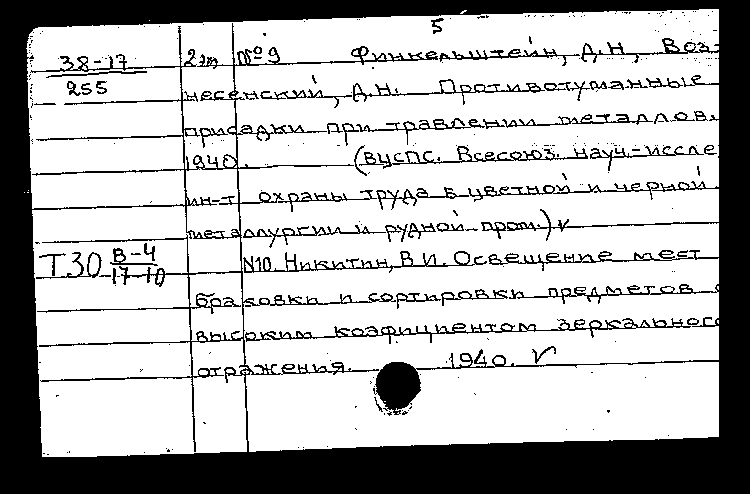 5
38-17 2эт №9 Финкельштейн, Д.Н, Воз-
255 несенский, Д.Н. Противотуманные
присадки при травлении металлов.
1940. (ВЦСПС. Всесоюз. науч-иссле
ин-т охраны труда в цветной и черной
металлургии и рудной пром.) v
Т30 В-4 N10. Никитин, В.И. Освещение мест
17-10
браковки и сортировки предметов с
высоким коэфициентом зеркального
отражения. 1940. V